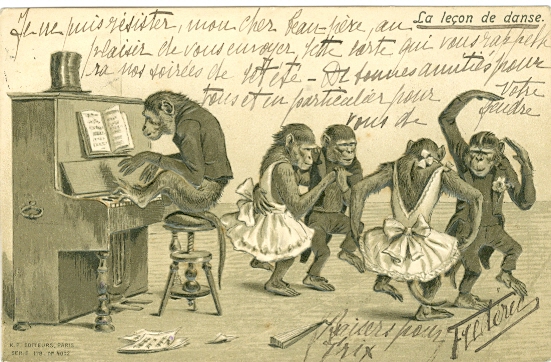 La leçon de danse.
Je ne puis résister, mon cher beau-père, au
plaisir de vous envoyer cette carte qui vous rappel
ra nos soirées de cet été - De bonnes amitiés pour
tous et en particulier pour
vous de
Votre
gendre
Baisers pour
K. F. EDITEURS, PARIS